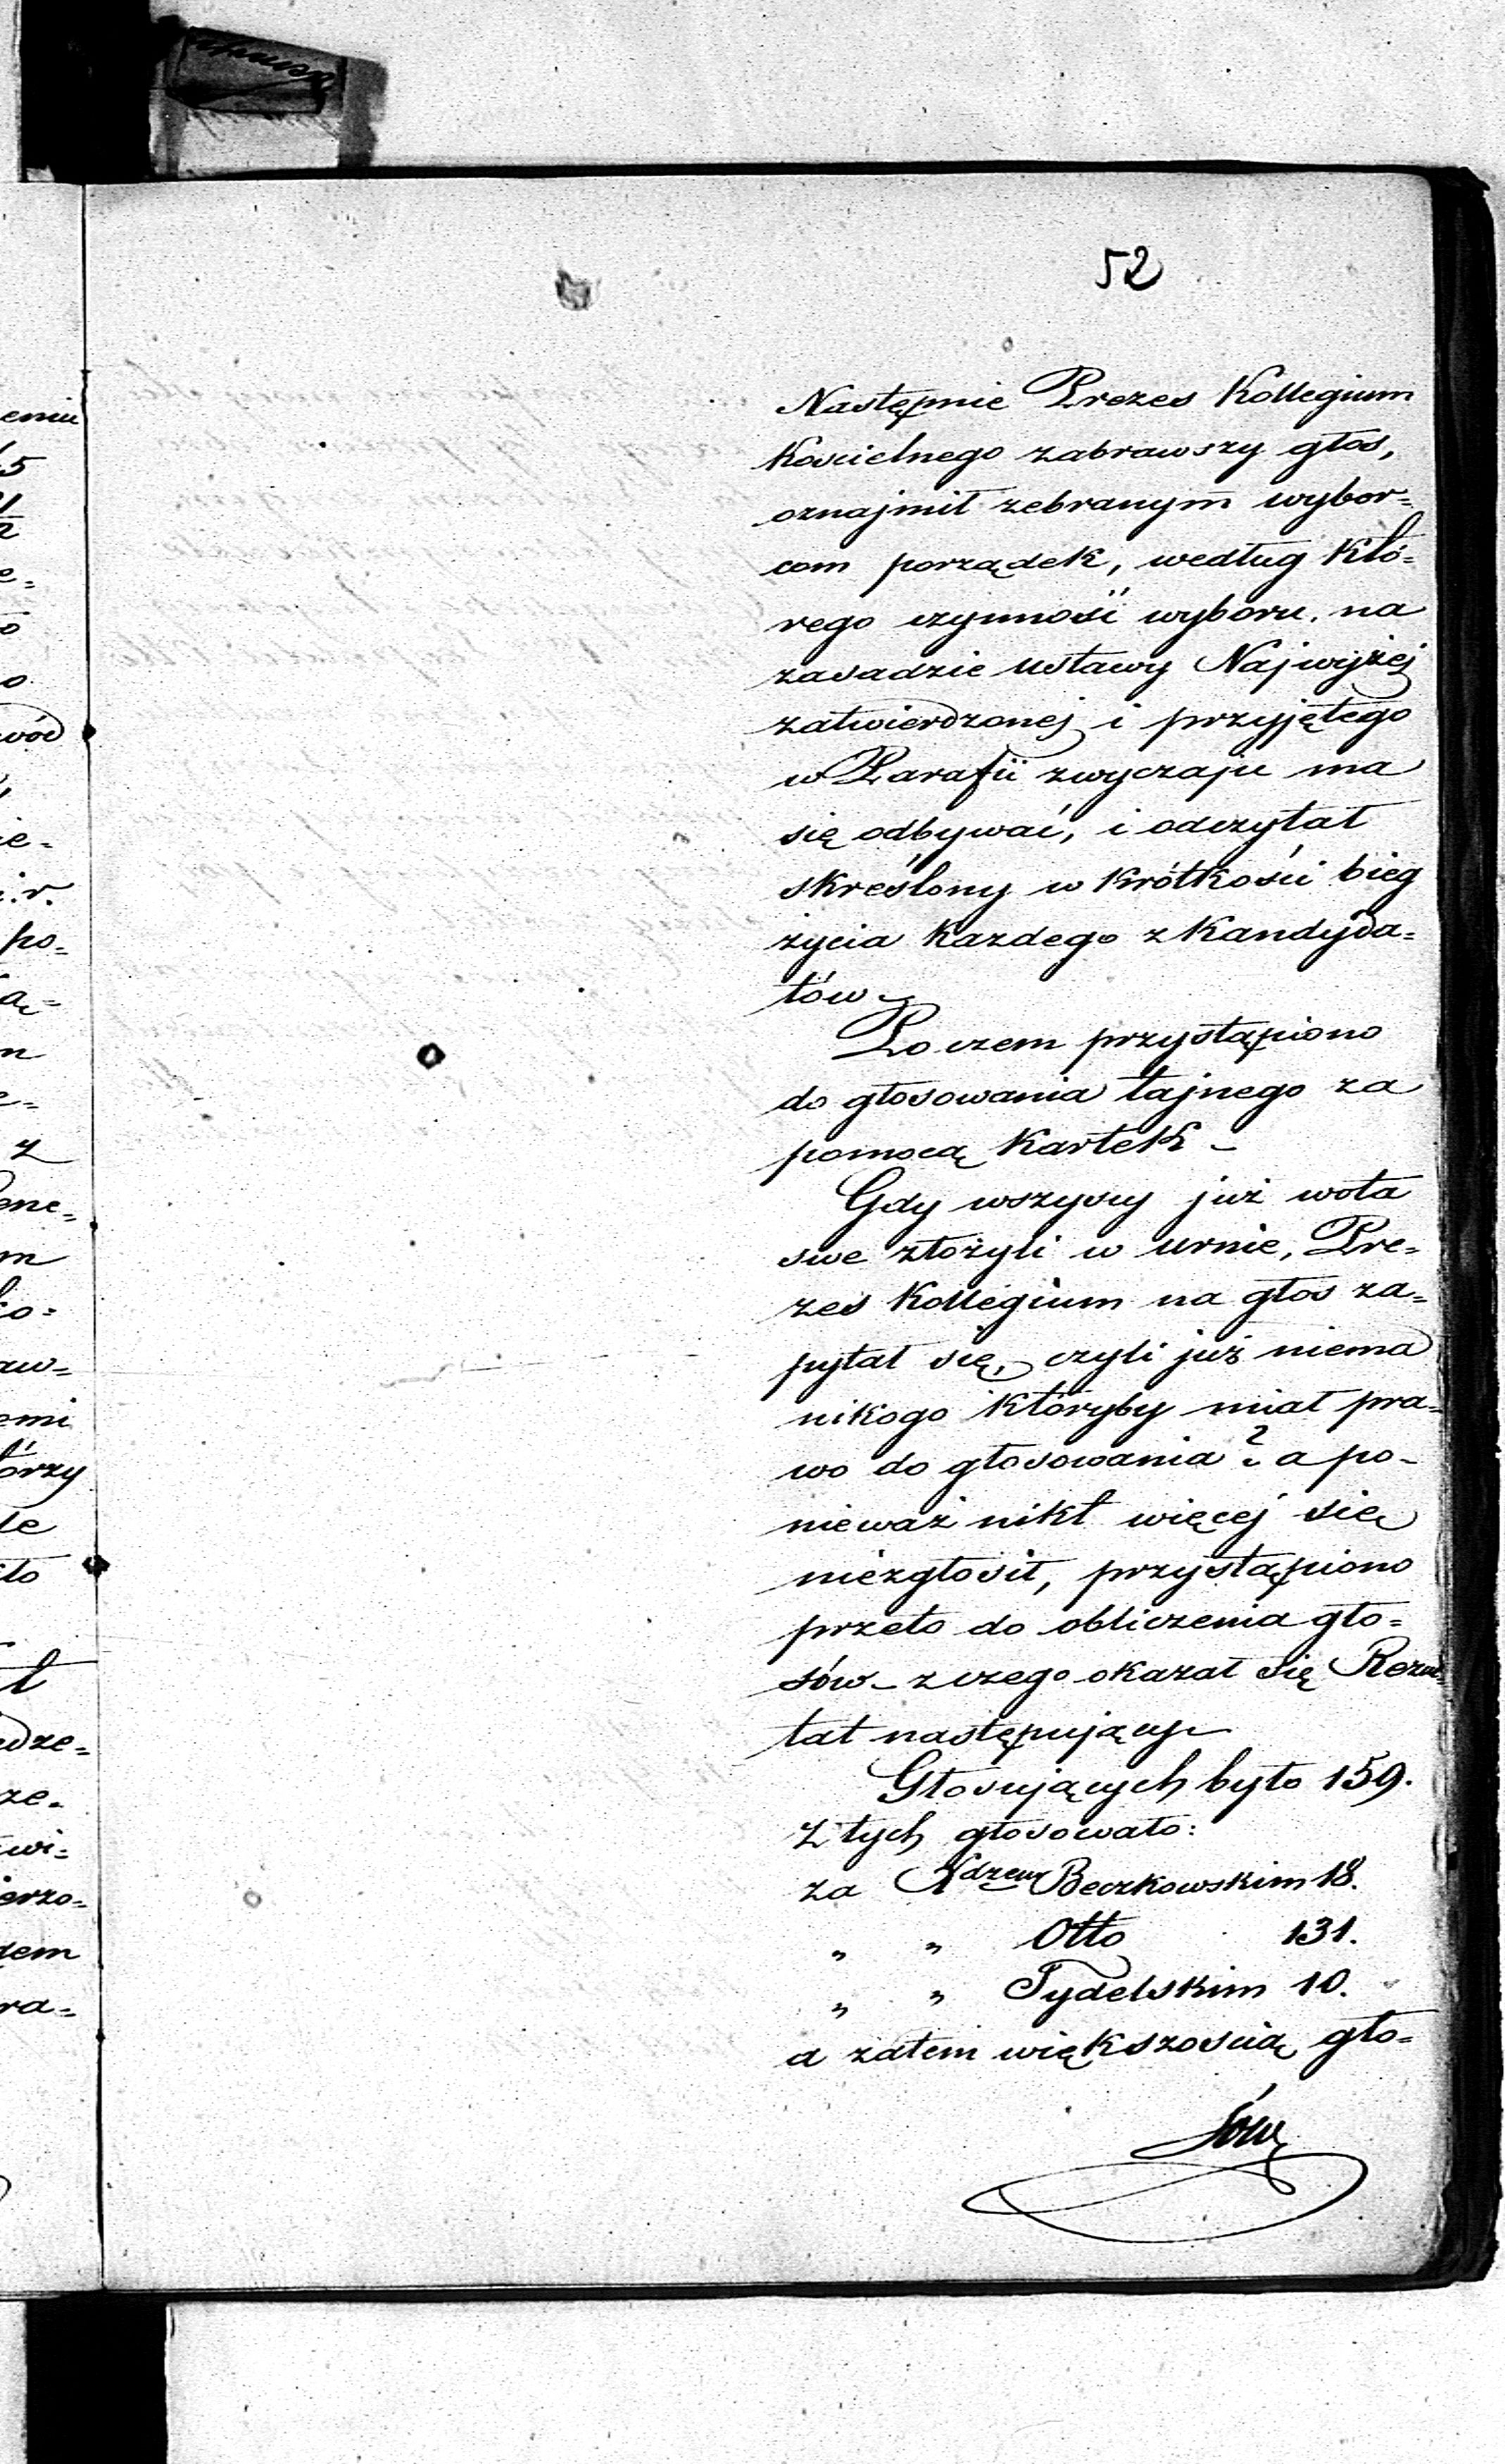 52
Następnie Prezes Kollegium
Kościelnego zabrawszy głos,
oznajmił zebranym wybor=
com porządek, według któ=
rego czynność wyboru, na
zasadzie ustawy Najwyżej
zatwierdzonej i przyjętego
w Parafii zwyczaju ma
się odbywać, i odczytał
skreślony w krótkości bieg
życia każdego z Kandyda=
tów –
Po czem przystąpiono
do głosowania tajnego za
pomocą Kartek –
Gdy wszyscy już wota
swe złożyli w urnie, Pre=
zes Kollegium na głos za=
pytał się, czyli już niema
nikogo któryby miał pra=
wo do głosowania? a po=
nieważ nikt więcej się
niezgłosił, przystąpiono
przeto do obliczenia gło=
sów – z czego okazał się Rezul=
tat następujący –
Głosujących było 159.
Z tych głosowało:
za Xdzem Beczkowskim 18.
" " Otto 131.
" " Tydelskim 10.
a zatem większością gło=
sów
eniu
5
e=
o
wód
ie=
i.r.
po=
ą=
n
z
ene=
m
ko=
aw=
emi
tórzy
le
ito
t
dze=
ze.
wi=
ierzo=
dem
ra=